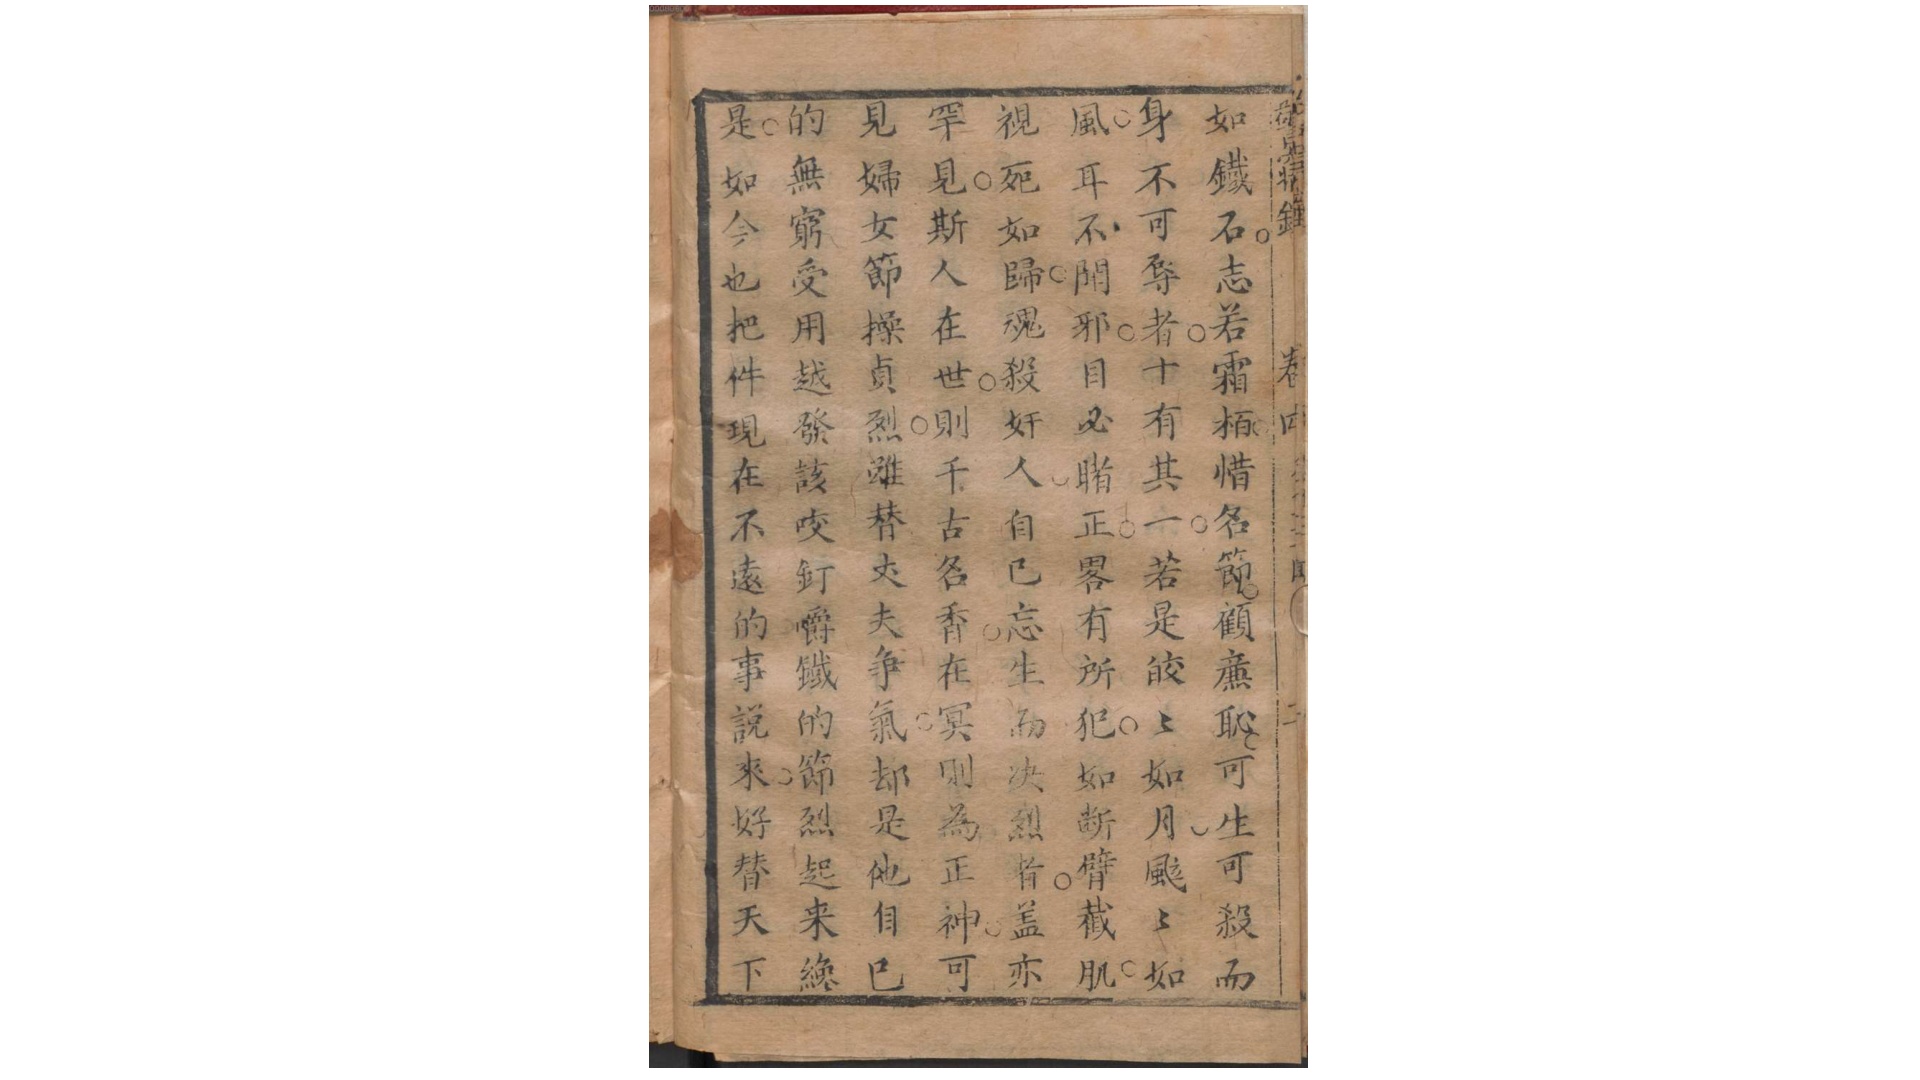 如鐵石志若霜栢惜名節顧廉恥可生可殺而
身不可辱者十有其一若是皎〻如月颷〻如
風耳不聞邪目必睹正畧有所犯如斷臂截肌
視死如歸魂殺奸人自己忘生而决烈者盖亦
罕見斯人在世則千古名香在冥則為正神可
見婦女節操貞烈雖替丈夫争氣却是他自己
的無窮受用越發該咬釘嚼鐵的節烈起来纔
是如今也把件現在不遠的事説來好替天下